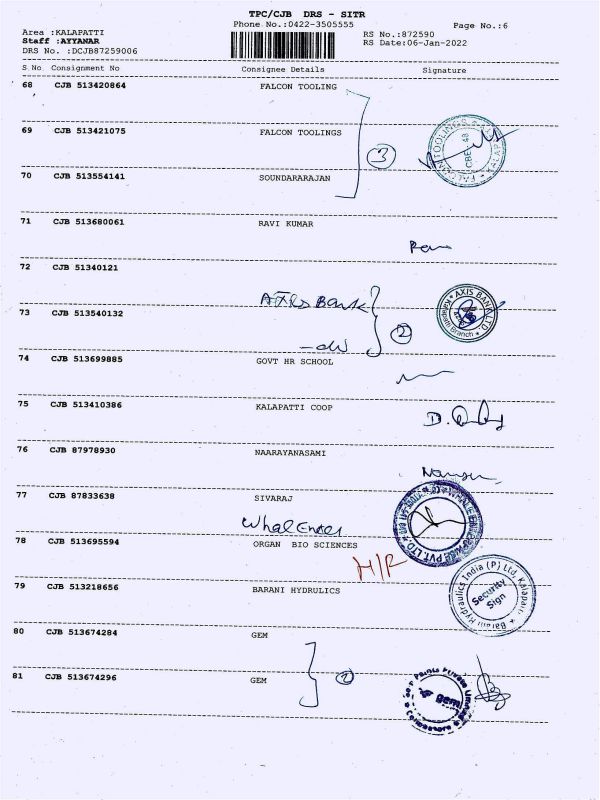 TPC/CJB DRS - SITR
Phone No.:0422-3505555
Page No.:6
Area :KALAPATTI
Staff :AYYANAR
DRS No. :DCJB87259006
RS No.:872590
RS Date:06-Jan-2022
S.No. Consignment No Consignee Details Signature
68 CJB 513420864 FALCON TOOLING
69 CJB 513421075 FALCON TOOLINGS
3
FALCON TOOLINGS
CBE - 48
70 CJB 513554141 SOUNDARARAJAN
71 CJB 513680061 RAVI KUMAR
72 CJB 51340121
Axis Bank
AXIS BANK LTD.
Kalapatti Branch
73 CJB 513540132
2
74 CJB 513699885 GOVT HR SCHOOL
75 CJB 513410386 KALAPATTI COOP
76 CJB 87978930 NAARAYANASAMI
77 CJB 87833638 SIVARAJ
PVT. LTD
78 CJB 513695594 ORGAN BIO SCIENCES
H/R
79 CJB 513218656 BARANI HYDRULICS
Barani Hydraulics India (P) Ltd, Kalapatti
Security
Sign
80 CJB 513674284 GEM
81 CJB 513674296 GEM
gem
Coimbatore